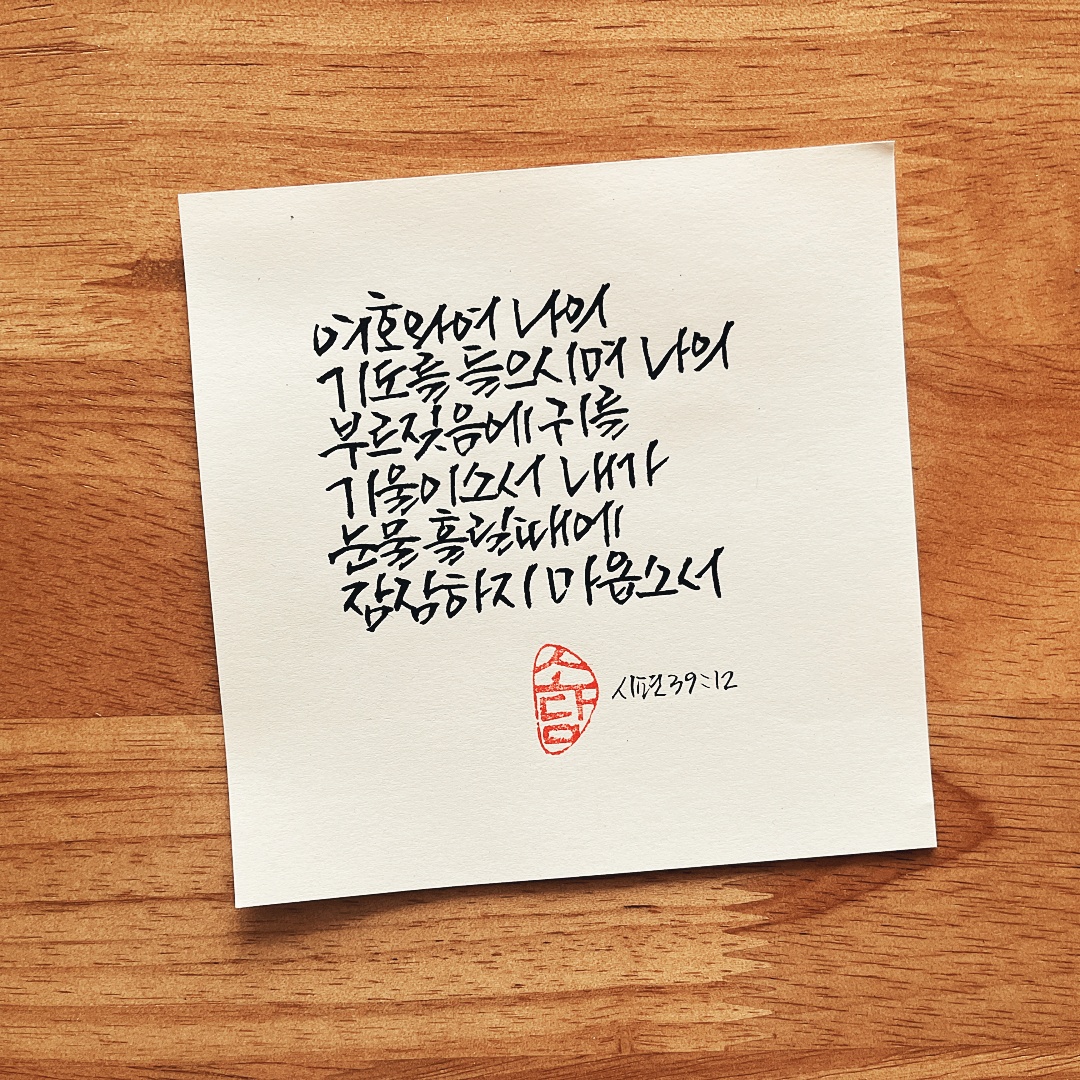 여호와여 나의
기도를 들으시며 나의
부르짖음에 귀를
기울이소서 내가
눈물 흘릴때에
잠잠하지 마옵소서
소담
시편 39:12